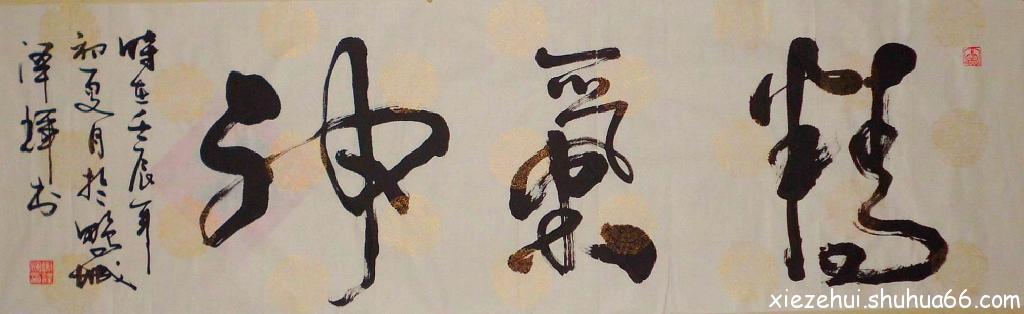 精氣神
時在壬辰年
初夏月於
澤輝书
xiezehui.shuhua66.com